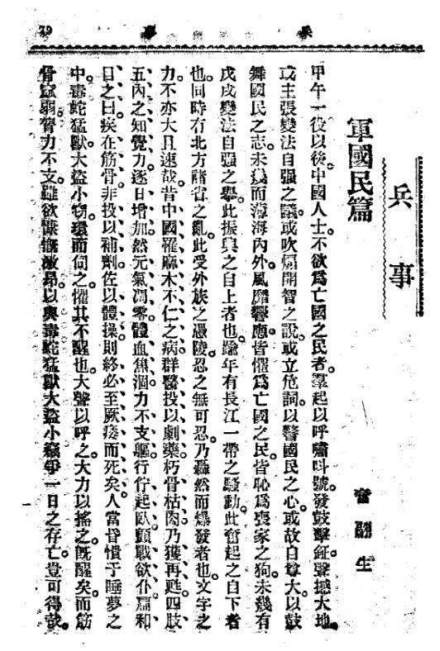 79
兵事
軍國民篇
奮翮生
甲午一役以後。中國人士。不欲爲亡國之民者。羣起以呼嘯叫號。發鼓擊鉦。聲撼大地。
或主張變法自强之議。或吹煽開智之說。或立危詞以警國民之心。或故自尊大以鼓
舞國民之志。未幾而薄海內外。風靡響應。皆懼爲亡國之民。皆恥爲喪家之狗。未幾有
戊戌變法自强之擧。此振興之自上者也。逾年有長江一帶之騷動。此奮起之自下者
也。同時有北方諸省之亂。此受外族之憑陵。忍之無可忍。乃轟然而爆發者也。文字之
力。不亦大且速哉。昔中國罹麻木不仁之病。群醫投以劇藥。朽骨枯肉。乃獲再甦。四肢
五內之知覺力。逐日增加。然元氣凋零。體血焦涸。力不支軀。行佇起臥。顫戰欲仆。扁和
目之曰。疾在筋骨。非投以補劑。佐以體操。則終必至厥痿而死矣。人當昏憒于睡夢之
中。毒蛇猛獸。大盜小竊。環而伺之。懼其不醒也。大聲以呼之。大力以搖之。旣醒矣。而筋
骨窳弱。膂力不支。雖欲慷慨激昂。以與毒蛇猛獸大盜小竊爭一日之存亡。豈可得哉。